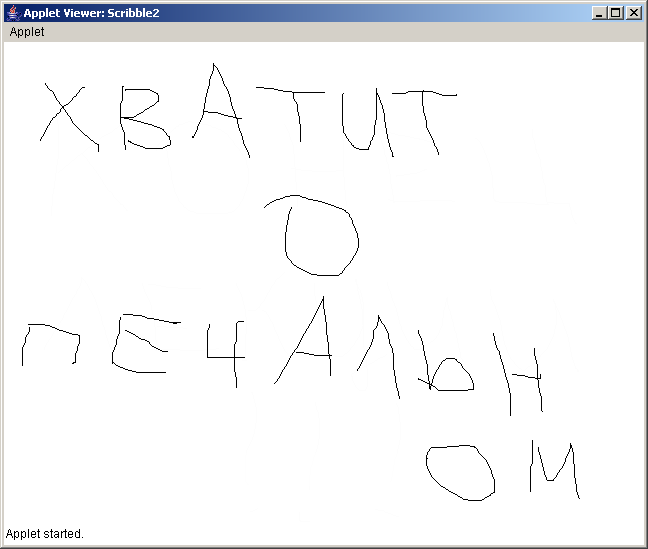 Applet Viewer: Scribble2
Applet
ХВАТИТ
О
ПЕЧАЛЬН
ОМ
Applet started.